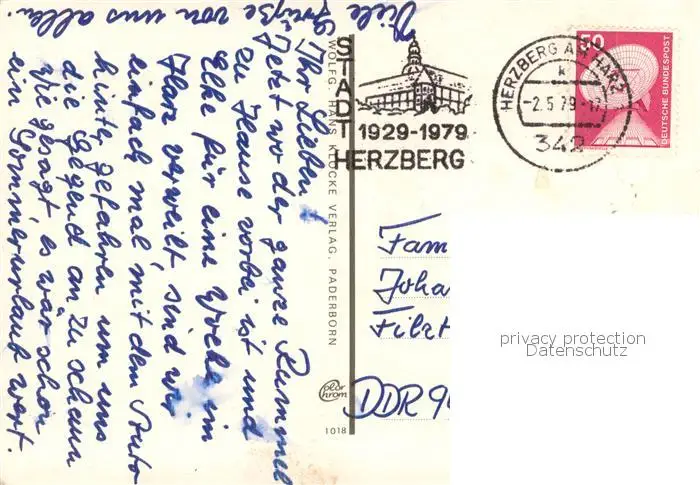 Ihr Lieben!
Jetzt wo der ganze Rummel
zu Hause vorbei ist und
Elke für eine Woche im
Harz verweilt, sind wir
einfach mal mit dem Auto
hinte gefahren um uns
die Gegend an zu schauen
wie gesagt, es wär schon
ein Sommerurlaub wert.
Viele
Grüße von uns allen.
WOLFG. HANS KLOCKE VERLAG, PADERBORN
color
chrom
1018
STADT
1929-1979
HERZBERG
HERZBERG AM HARZ
k
-2.5.79-17
342
50
DEUTSCHE BUNDESPOST
Fam
Joha
Filzt
DDR 9
privacy protection
Datenschutz